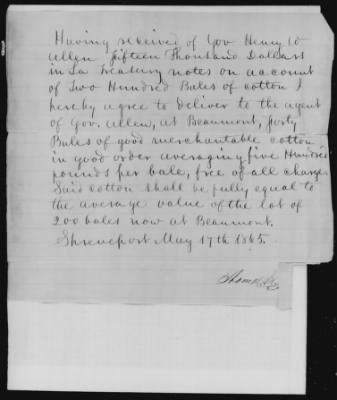 Having received of Gov Henry W
Allen fifteen Thousand Dollars
in La Treasury notes on account
of Two Hundred Bales of cotton I
hereby agree to deliver to the agent
of Gov. Allen, at Beaumont, forty
Bales of good merchantable cotton
in good order averaging five Hundred
pounds per bale, free of all charges
Said cotton shall be fully equal to
the average value of the lot of
200 bales now at Beaumont.
Shreveport May 17th 1865.